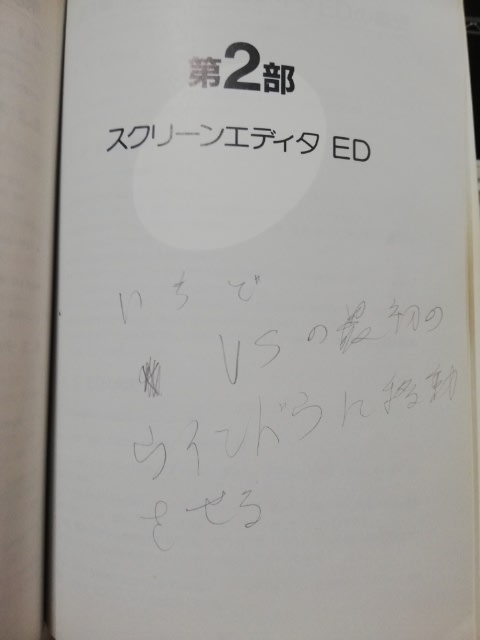 第2部
スクリーンエディタ ED
いちで
VSの最初の
ウインドウに移動
させる